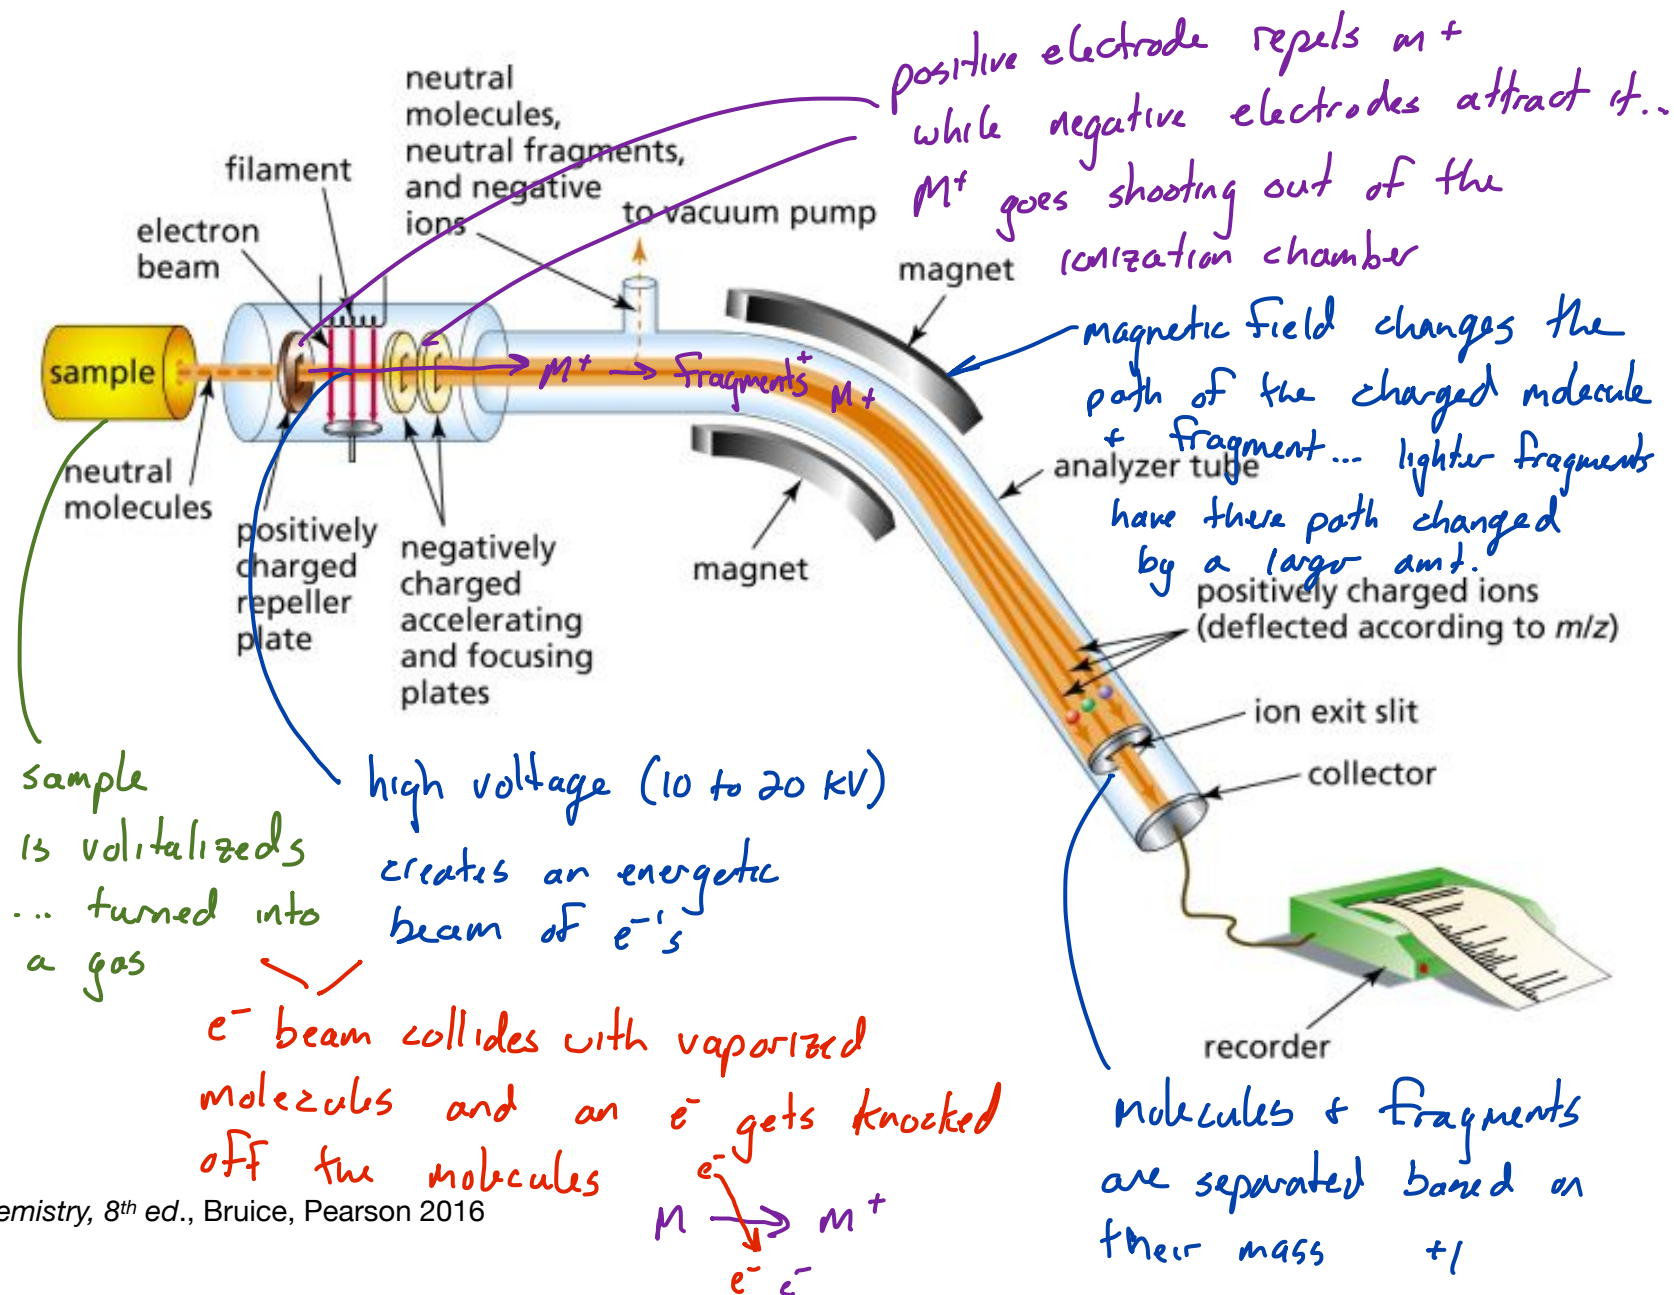 neutral
molecules,
neutral fragments,
and negative
ions
filament
electron
beam
to vacuum pump
magnet
sample
neutral
molecules
positively
charged
repeller
plate
negatively
charged
accelerating
and focusing
plates
magnet
analyzer tube
positively charged ions
(deflected according to m/z)
ion exit slit
collector
recorder
positive electrode repels m+
while negative electrodes attract it...
M+ goes shooting out of the
ionization chamber
M+ → fragments+ M+
magnetic field changes the
path of the charged molecule
+ fragment... lighter fragments
have there path changed
by a larger amt.
sample
is volitalizeds
... turned into
a gas
high voltage (10 to 20 kV)
creates an energetic
beam of e-'s
e- beam collides with vaporized
molecules and an e- gets knocked
off the molecules
e-
M → M+
e- e-
molecules + fragments
are separated based on
their mass +1
emistry, 8th ed., Bruice, Pearson 2016